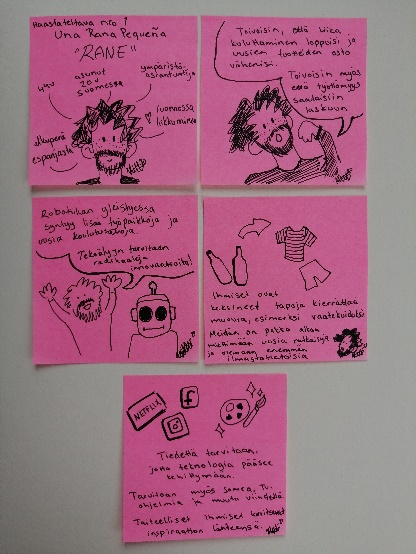 Haastateltava nro 1
Una Rana Pequeña
"RANE"
44v
asunut
20v
Suomessa
ympäristö-
asiantuntija
alkuperä
espanjasta
luonnossa
liikkuminen
Toivoisin, että liika
kuluttaminen loppuisi ja
uusien tuotteiden osto
vähenisi.
Toivoisin myös
että työttömyys
saataisiin
laskuun
Robotiikan yleistyessä
syntyy lisää työpaikkoja ja
uusia koulutusaloja.
Tekoälyyn tarvitaan
radikaaleja
innovaatioita!
Ihmiset ovat
keksineet tapoja kierrättää
muovia, esimerkiksi vaatekuiduiksi
Meidän on pakko alkaa
miettimään uusia ratkaisuja
ja olemaan enemmän
ilmastotietoisia
NETFLIX
f
Tiedettä tarvitaan,
jotta teknologia pääsee
kehittymään.
Tarvitaan myös somea, TV-
ohjelmia ja muuta viihdettä.
Taiteelliset ihmiset
inspiraation lähteenä.